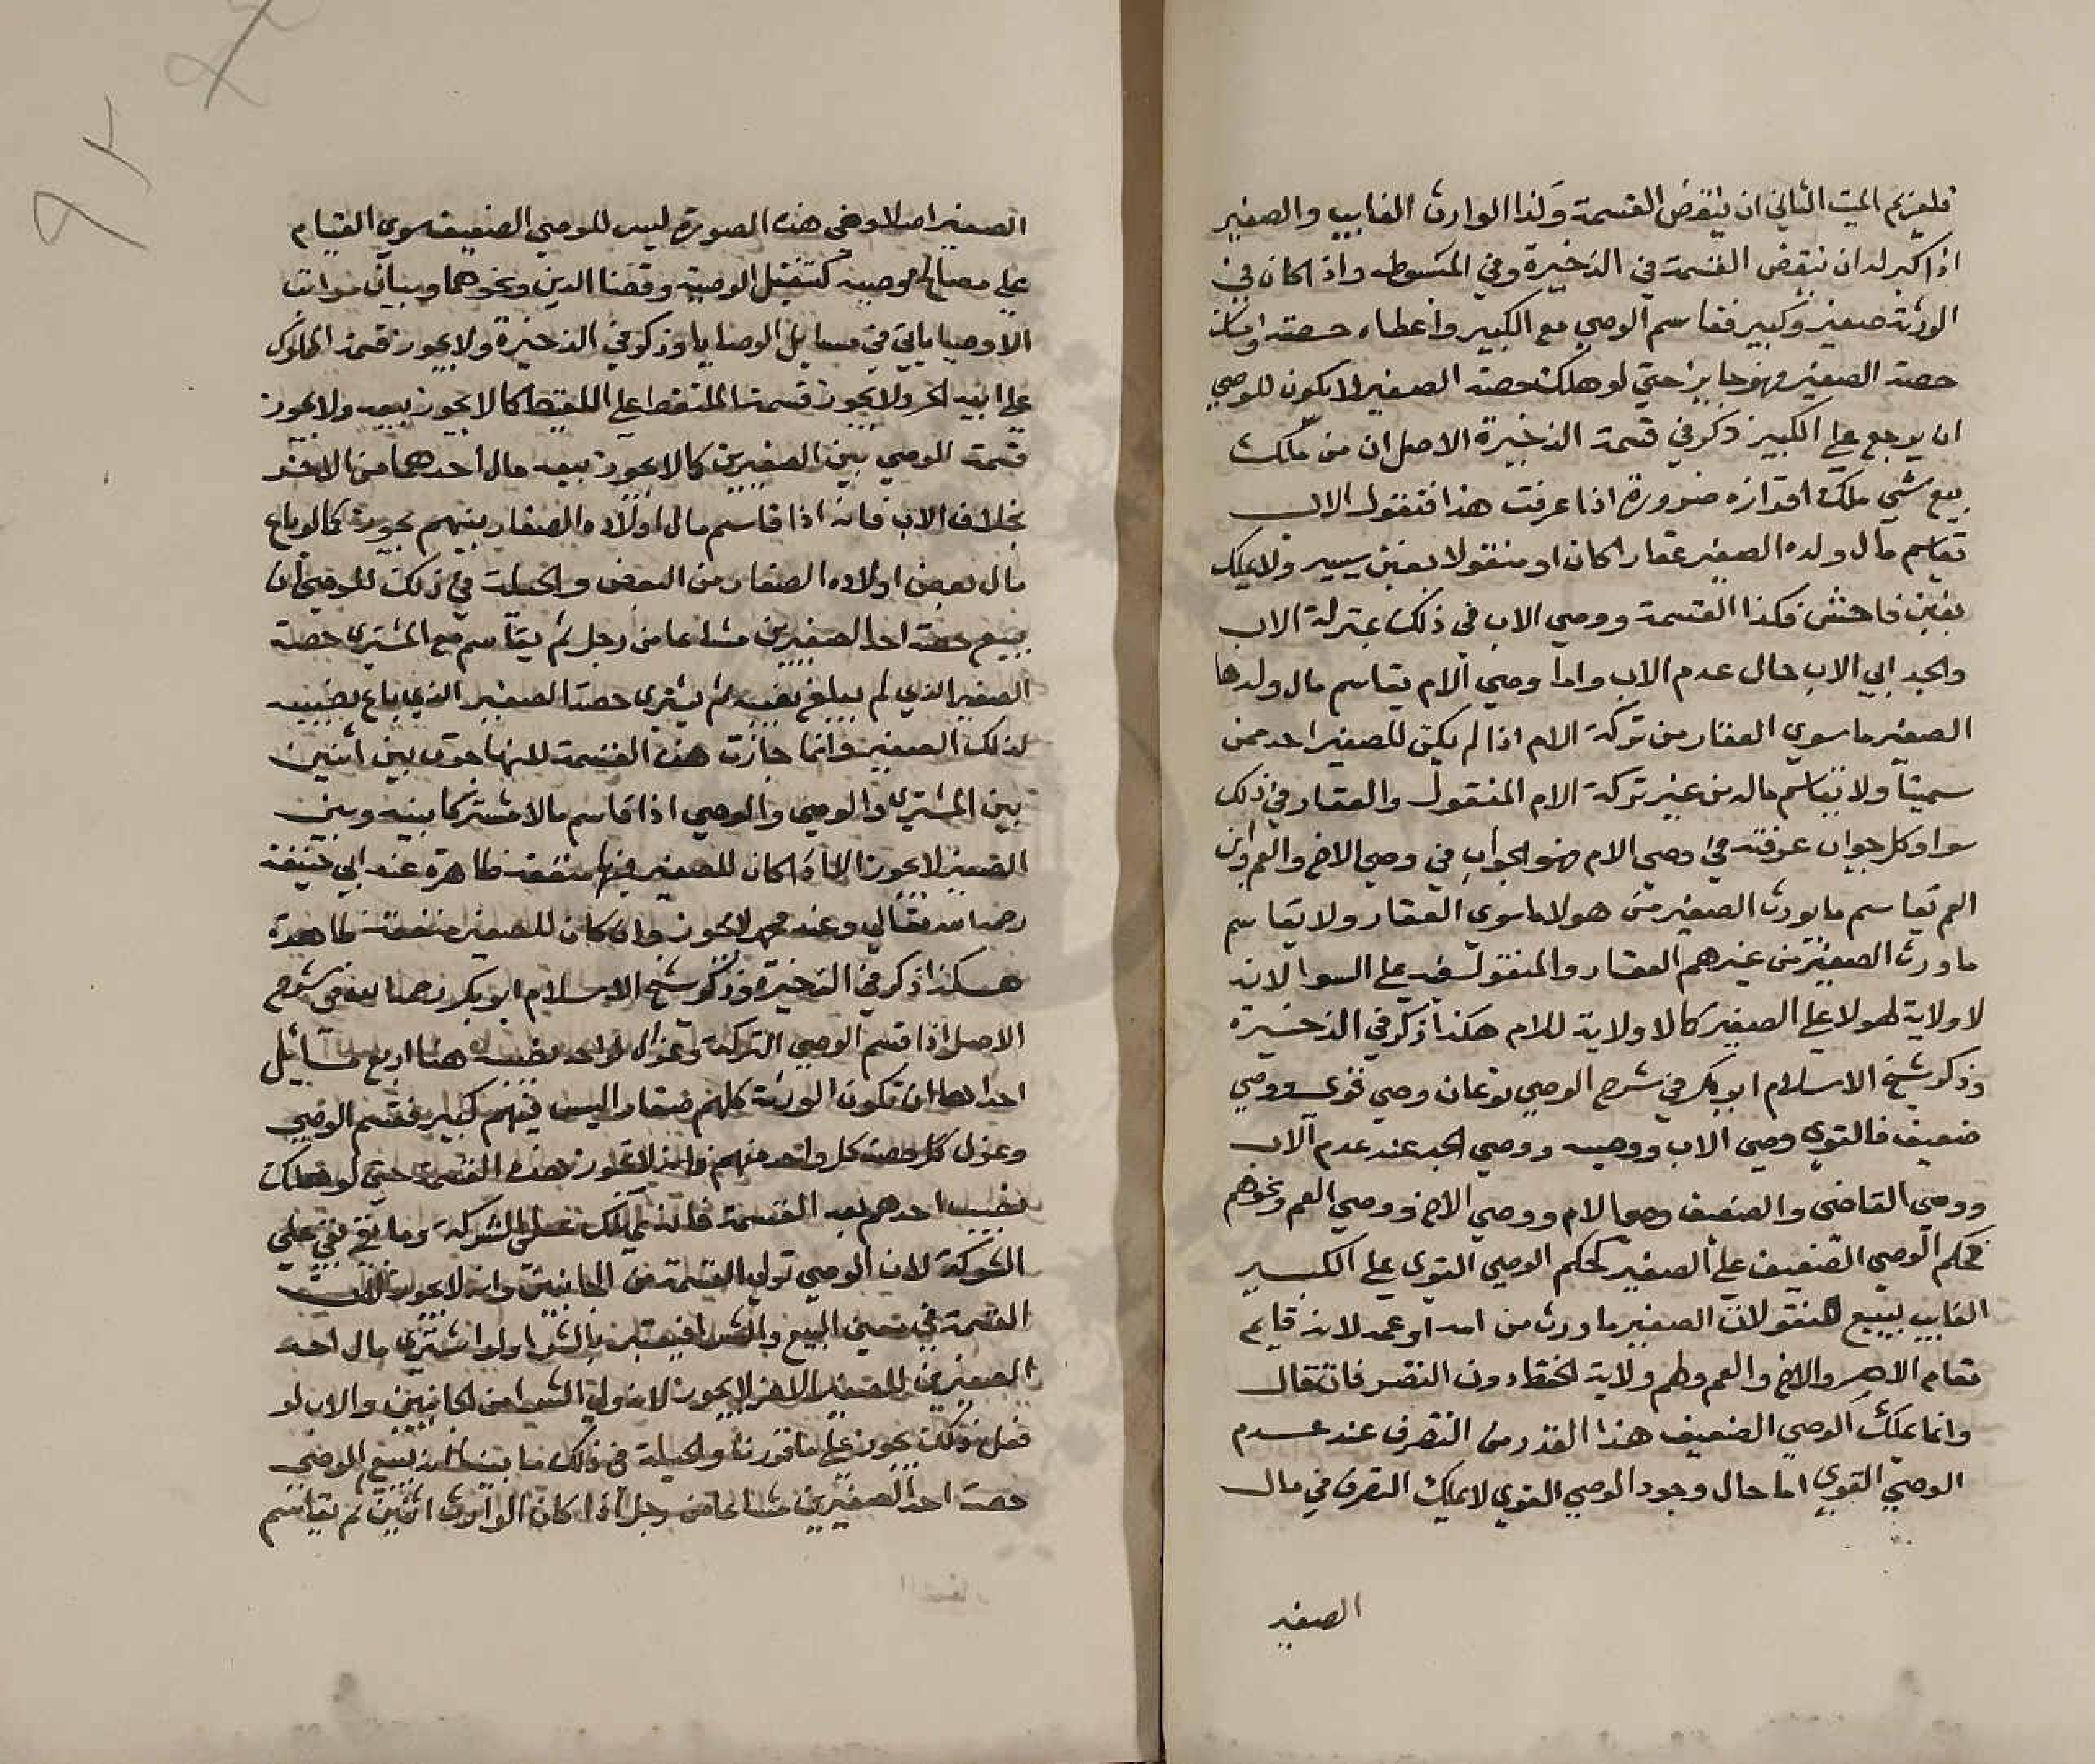 فلغريم الميت الثاني ان ينقض القسمة وكذا الوارث الغايب والصغير
اذا كبر له ان ينقض القسمة في الذخيرة وفي المبسوط واذا كان في
الورثة صغير وكبير فقاسم الوصي مع الكبير واعطاه حصته وامسك
حصة الصغير فهو جايز حتي لو هلكت حصة الصغير لا يكون للوصي
ان يرجع علي الكبير ذكر في قسمة الذخيرة الاصل ان من ملك
بيع شي ملك افرازه ضرورة اذا عرفت هذا فنقول الاب
تقاسم مال ولده الصغير عقارا كان او منقولا بغبن يسير ولا يملك
بغبن فاحش فكذا القسمة ووصي الاب في ذلك بمنزلة الاب
والجد ابي الاب حال عدم الاب واما وصي الام يقاسم مال ولدها
الصغير ما سوي العقار من تركة الام اذا لم يكن للصغير احد ممن
سمينا ولا يقاسم ماله من غير تركة الام المنقول والعقار في ذلك
سوا وكل جواب عرفته في وصي الام فهو الجواب في وصي الاخ والعم وابن
العم يقاسم ما يورث الصغير من هولا ما سوي العقار ولا يقاسم
ما ورث الصغير من غيرهم العقار والمنقول فيه علي السوا لانه
لا ولاية لهولا علي الصغير كما لا ولاية للام هكذا ذكر في الذخيرة
وذكر شيخ الاسلام ابو بكر في شرح الوصي نوعان وصي قوي ووصي
ضعيف فالقوي وصي الاب ووصيه ووصي الجد عند عدم الاب
ووصي القاضي والضعيف وصي الام ووصي الاخ ووصي العم ونحوهم
فحكم الوصي الضعيف علي الصغير كحكم الوصي القوي علي الكبير
الغايب يبيع منقولات الصغير ما ورث من امه او عمه لانه قايم
مقام الام والاخ والعم ولهم ولاية الحفظ دون التصرف فان قال
وانما يملك الوصي الضعيف هذا القدر من التصرف عند عدم
الوصي القوي اما حال وجود الوصي القوي لا يملك التصرف في مال
الصغير
الصغير اصلا وفي هذه الصورة ليس للوصي الضعيف سوي القيام
علي مصالح الموصيه كتنفيذ الوصية وقضا الدين ونحوهما وبيان مراتب
الاوصيا ياتي في مسايل الوصايا وذكر في الذخيرة ولا يجوز قسمة المملوك
علي ابنه الحر ولا يجوز قسمة الملتقط علي اللقيط كما لا يجوز بيعه ولا يجوز
قسمة الوصي بين الصغيرين كما لا يجوز بيعه مال احدهما من الاخر
بخلاف الاب فانه اذا قاسم مال اولاده الصغار بينهم يجوز كما لو باع
مال بعض اولاده الصغار من البعض والحيلة في ذلك للوصي ان
يبيع حصة احد الصغيرين مشاعا من رجل ثم يقاسم مع المشتري حصة
الصغير الذي لم يبلغ نصيبه ثم يشتري حصة الصغير الذي باع نصيبه
لذلك الصغير وانما جازت هذه القسمة لانها جرت بين اثنين
بين المشتري والوصي والوصي اذا قاسم مالا مشتركا بينه وبين
الصغير لا يجوز الا اذا كان للصغير فيها منفعة ظاهرة عند ابي حنيفة
رحمه الله تعالي وعند محمد لا يجوز وان كان للصغير منفعة ظاهرة
هكذا ذكر في الذخيرة وذكر شيخ الاسلام ابو بكر رحمه الله في شرح
الاصل اذا قسم الوصي التركة وعزل لواحد نصيبه هنا اربع مسائل
احداها ان تكون الورثة كلهم صغارا ليس فيهم كبير فقسم الوصي
وعزل كل حصة كل واحد منهم وانه لا تجوز هذه القسمة حتي لو هلكت
نصيب احدهم بعد القسمة فانه يهلك علي الشركة وما بقي بقي علي
الشركة لان الوصي تولي القسمة من الجانبين وانه لا يجوز لان
القسمة في معني البيع والشرا فيعتبر بالشرا ولو اشتري مال احد
الصغيرين للصغير الاخر لا يجوز لانه ولي الشرا من الجانبين والاب لو
فعل ذلك يجوز علي ما قررنا والحيلة في ذلك ما بينا انه يبيع الوصي
حصة احد الصغيرين مشاعا من رجل اذا كان الوارث اثنين ثم يقاسم